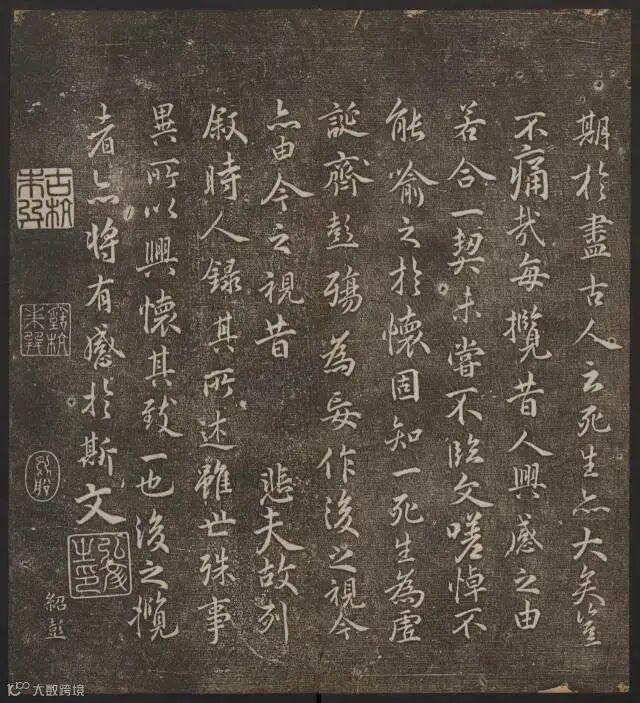 期於盡古人云死生亦大矣豈
不痛哉每攬昔人興感之由
若合一契未嘗不臨文嗟悼不
能喻之於懷固知一死生為虛
誕齊彭殤為妄作後之視今
亦由今之視昔 悲夫故列
叙時人錄其所述雖世殊事
異所以興懷其致一也後之攬
者亦將有感於斯文
紹彭
大數跨境